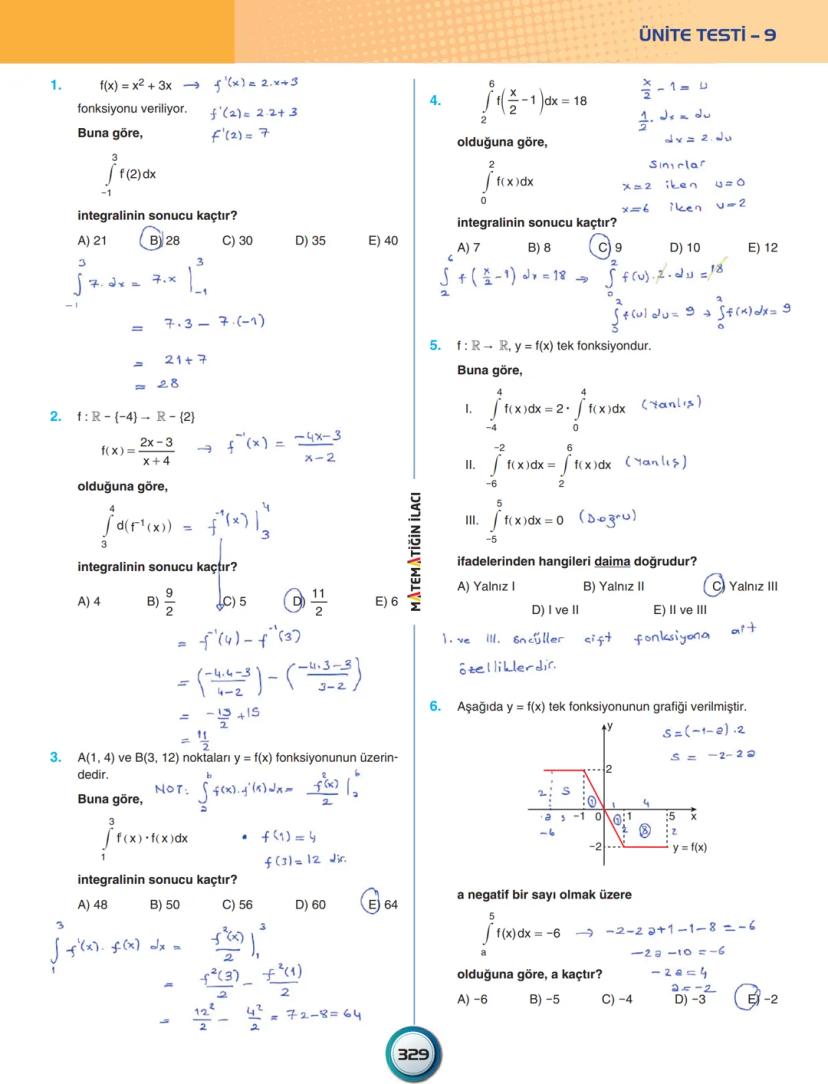 ÜNİTE TESTİ – 9
1. f(x) = x² + 3x → f'(x) = 2.x+3
fonksiyonu veriliyor. f'(2) = 2.2+3
Buna göre, f'(2) = 7
∫₋₁³ f'(2) dx
integralinin sonucu kaçtır?
A) 21 B) 28 C) 30 D) 35 E) 40
∫₋₁³ 7.dx = 7.x |₋₁³
= 7.3 – 7.(-1)
= 21+7
= 28
2. f : ℝ – {–4} → ℝ – {2}
f(x) = (2x – 3)/(x + 4) → f⁻¹(x) = (-4x-3)/(x-2)
olduğuna göre,
∫₃⁴ d(f⁻¹(x)) = f⁻¹(x) |₃⁴
integralinin sonucu kaçtır?
A) 4 B) 9/2 C) 5 D) 11/2 E) 6
= f⁻¹(4) – f⁻¹(3)
= ((-4.4-3)/(4-2)) – ((-4.3-3)/(3-2))
= -19/2 + 15
= 11/2
3. A(1, 4) ve B(3, 12) noktaları y = f(x) fonksiyonunun üzerin-
dedir.
NOT: ∫ₐᵇ f(x).f'(x)dx = f²(x)/2 |ₐᵇ
Buna göre,
∫₁³ f'(x)·f(x)dx • f(1) = 4
f(3) = 12 dir.
integralinin sonucu kaçtır?
A) 48 B) 50 C) 56 D) 60 E) 64
∫₁³ f'(x). f(x) dx = f²(x)/2 |₁³
= f²(3)/2 – f²(1)/2
= 12²/2 – 4²/2 = 72-8 = 64
MATEMATİĞİN İLACI
4. ∫₂⁶ f(x/2 – 1)dx = 18
x/2 - 1 = u
1/2 . dx = du
dx = 2.du
olduğuna göre,
∫₀² f(x)dx
Sınırlar
x=2 iken u=0
x=6 iken u=2
integralinin sonucu kaçtır?
A) 7 B) 8 C) 9 D) 10 E) 12
∫₂⁶ f(x/2 – 1) dx = 18 → ∫₀² f(u).2.du = 18
∫₀² f(u) du = 9 → ∫₀² f(x)dx = 9
5. f : ℝ → ℝ, y = f(x) tek fonksiyondur.
Buna göre,
I. ∫₋₄⁴ f(x)dx = 2· ∫₀⁴ f(x)dx (Yanlış)
II. ∫₋₆⁻² f(x)dx = ∫₂⁶ f(x)dx (Yanlış)
III. ∫₋₅⁵ f(x)dx = 0 (Doğru)
ifadelerinden hangileri daima doğrudur?
A) Yalnız I B) Yalnız II C) Yalnız III
D) I ve II E) II ve III
I. ve III. öncüller çift fonksiyona ait
özelliklerdir.
6. Aşağıda y = f(x) tek fonksiyonunun grafiği verilmiştir.
y
S = (-1-a).2
S = -2-2a
2
2 S 1 1 4
a -1 0 1 5 x
-6 1 2 8 2
–2 y = f(x)
a negatif bir sayı olmak üzere
∫ₐ⁵ f(x)dx = –6 → -2-2a+1-1-8 = -6
-2a-10 = -6
olduğuna göre, a kaçtır? -2a = 4
a = -2
A) –6 B) –5 C) –4 D) –3 E) –2
329